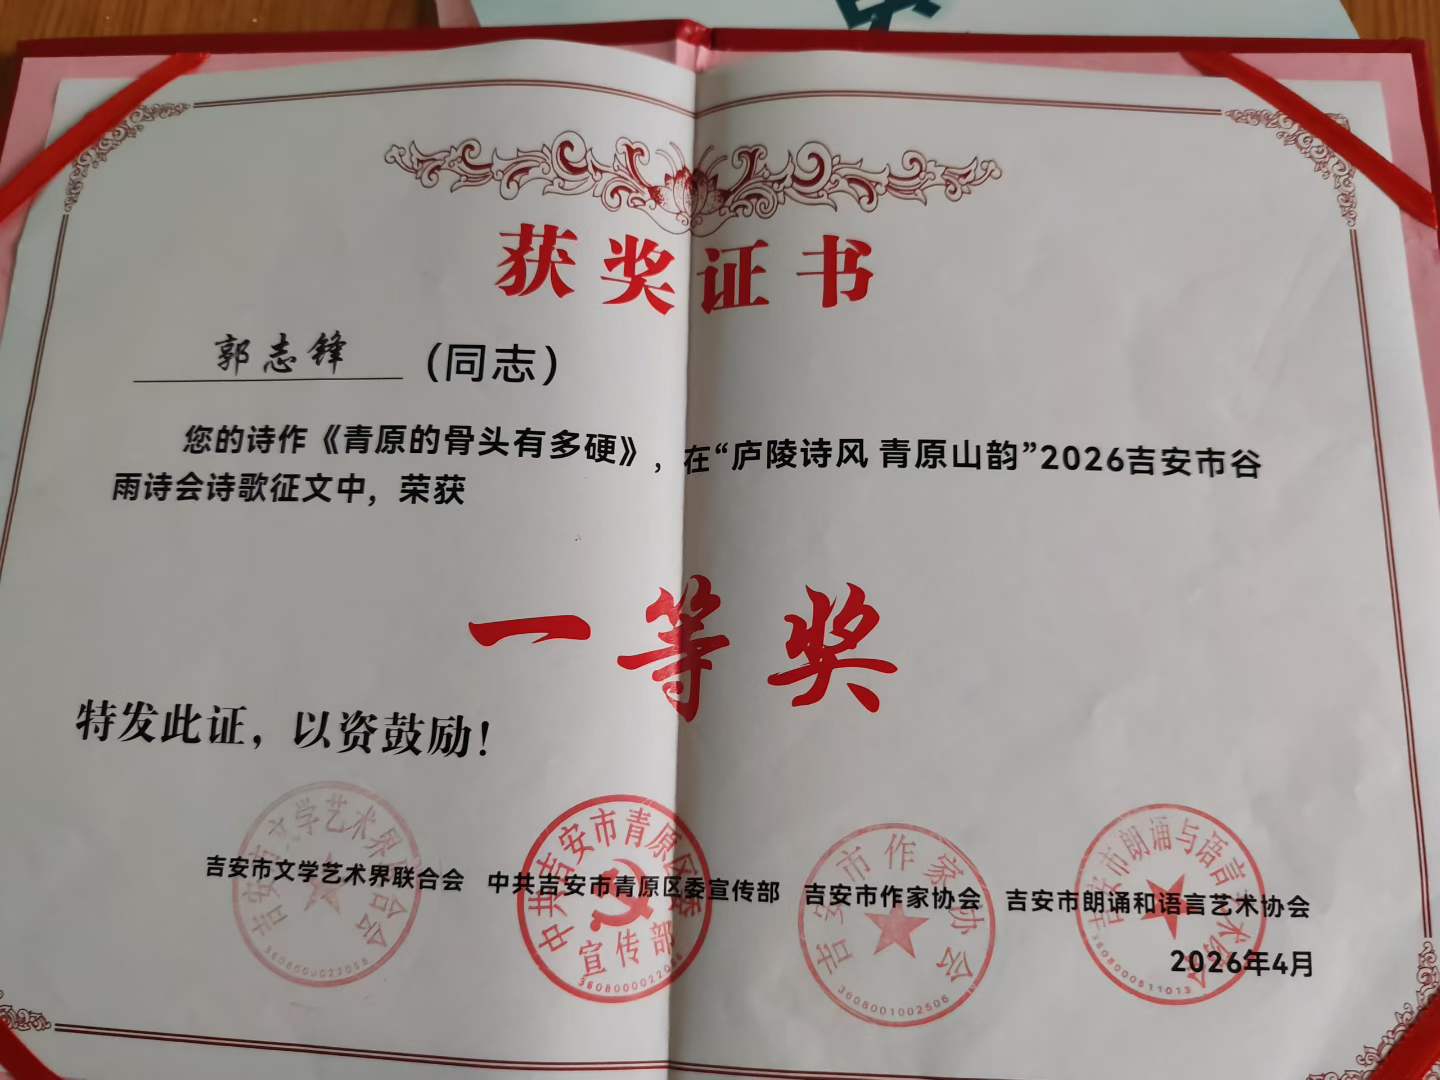 获奖证书
郭志锋 （同志）
您的诗作《青原的骨头有多硬》，在“庐陵诗风 青原山韵”2026吉安市谷
雨诗会诗歌征文中，荣获
一等奖
特发此证，以资鼓励！
吉安市文学艺术界联合会 中共吉安市青原区委宣传部 吉安市作家协会 吉安市朗诵和语言艺术协会
2026年4月
吉安市文学艺术界联合会
3608000022058
中共吉安市青原区委
宣传部
吉安市作家协会
3608001002506
吉安市朗诵与语言艺术协会
3608000611013